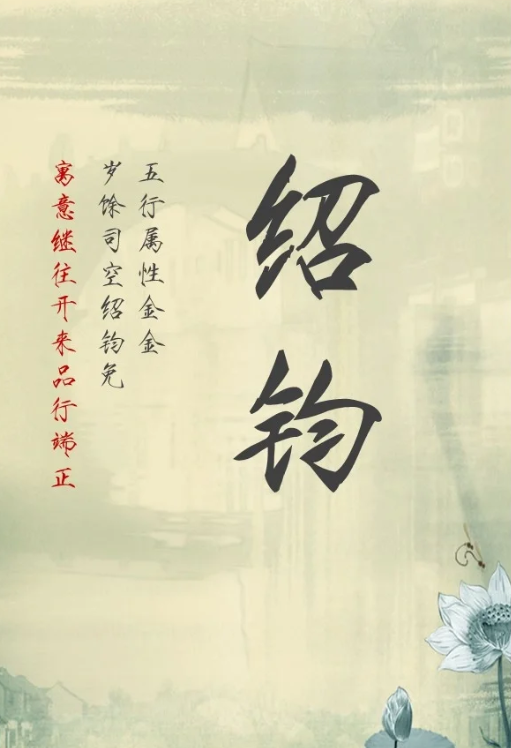 绍钧
五行属性金金
岁馀司空绍钧免
寓意继往开来品行端正